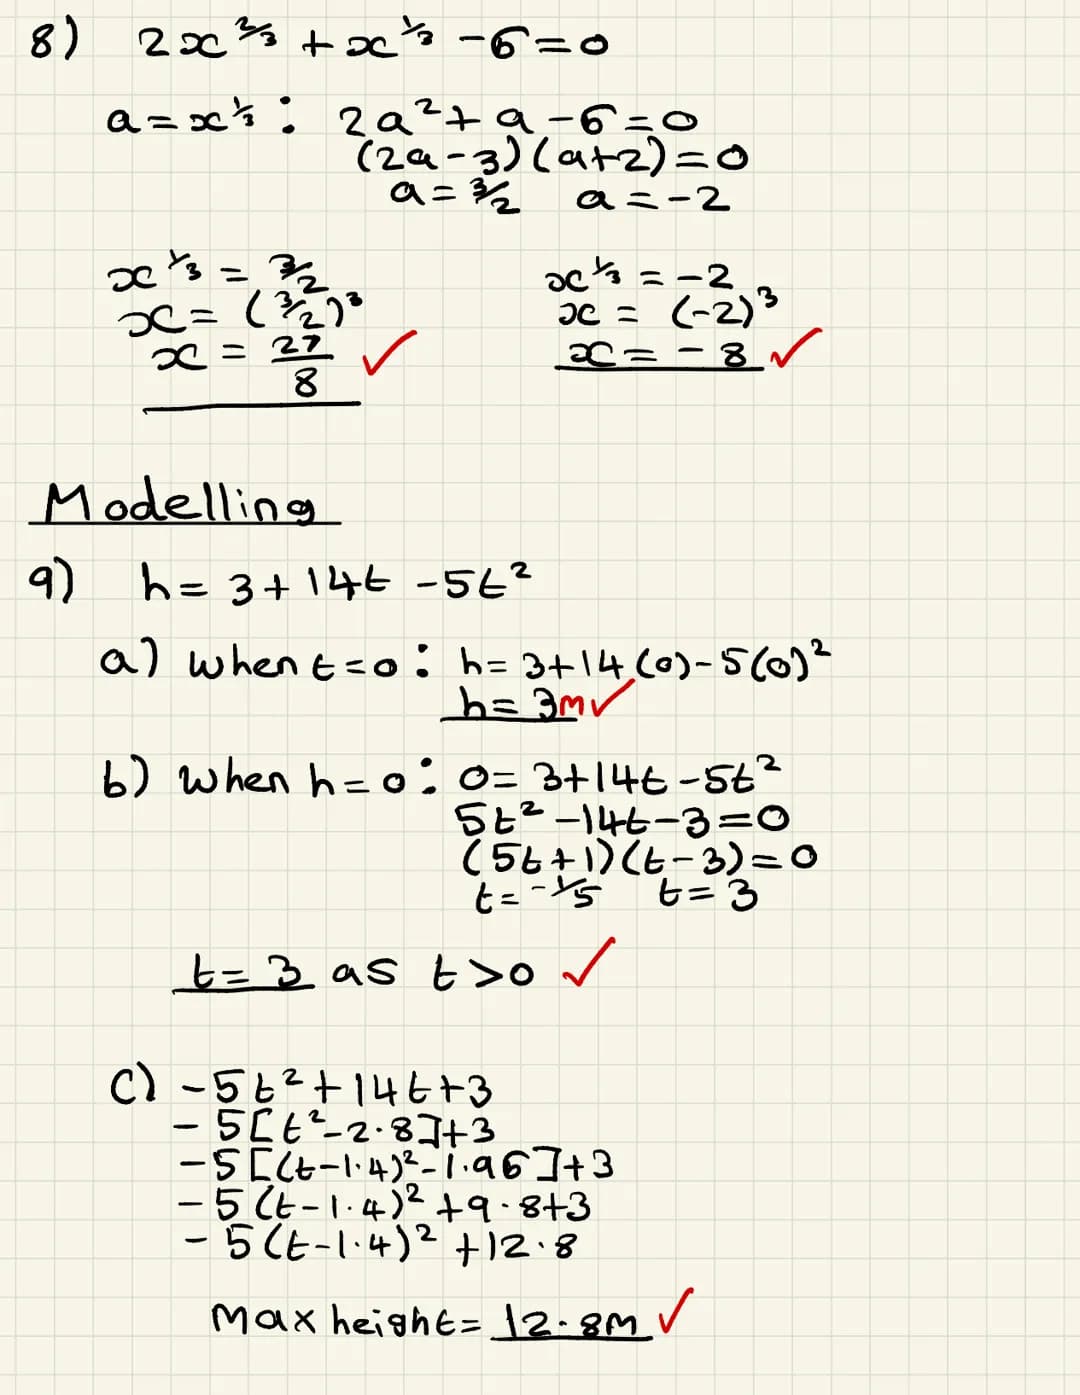 8) 2x^2/3 + x^1/3 - 6 = 0
a = x^1/3 : 2a² + a - 6 = 0
(2a - 3)(a + 2) = 0
a = 3/2 a = -2
x^1/3 = 3/2
x = (3/2)³
x = 27/8 ✓
x^1/3 = -2
x = (-2)³
x = -8 ✓
Modelling
9) h = 3 + 14t - 5t²
a) when t = 0 : h = 3 + 14(0) - 5(0)²
h = 3m ✓
b) when h = 0 : 0 = 3 + 14t - 5t²
5t² - 14t - 3 = 0
(5t + 1)(t - 3) = 0
t = -1/5 t = 3
t = 3 as t > 0 ✓
c) -5t² + 14t + 3
-5[t² - 2.8] + 3
-5[(t - 1.4)² - 1.96] + 3
-5(t - 1.4)² + 9.8 + 3
-5(t - 1.4)² + 12.8
Max height = 12.8m ✓